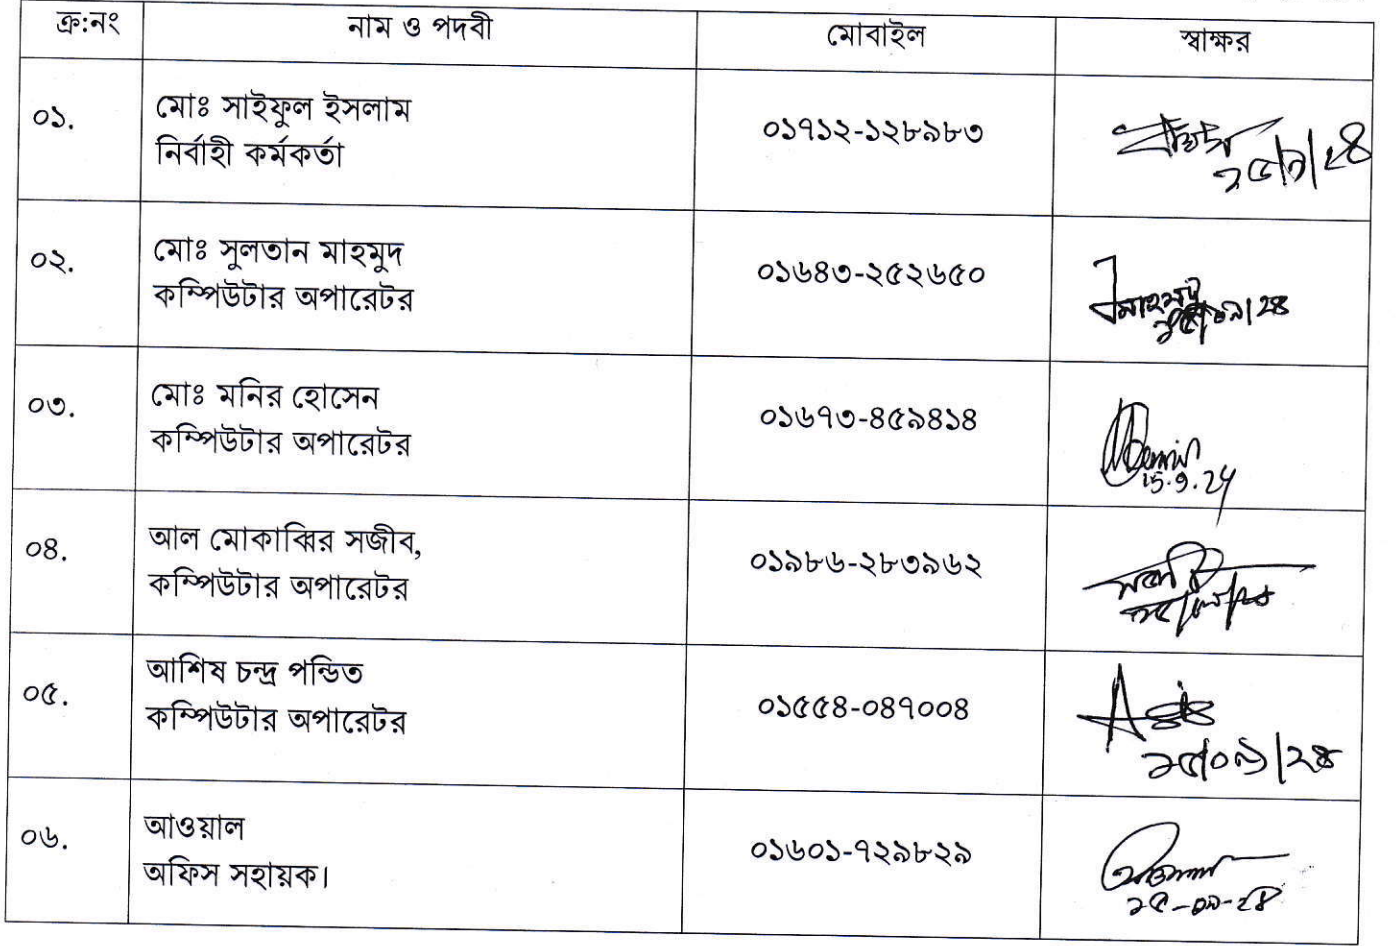 ক্র:নং নাম ও পদবী মোবাইল স্বাক্ষর
০১. মোঃ সাইফুল ইসলাম
নির্বাহী কর্মকর্তা
০১৭১২-১২৮৯৮৩
২৫/৯/২৪
০২. মোঃ সুলতান মাহমুদ
কম্পিউটার অপারেটর
০১৬৪৩-২৫২৬৫০
মাহমুদ
০৩. মোঃ মনির হোসেন
কম্পিউটার অপারেটর
০১৬৭৩-৪৫৯৪১৪
15.9.24
০৪. আল মোকাব্বির সজীব,
কম্পিউটার অপারেটর
০১৯৮৬-২৮৩৯৬২
০৫. আশিষ চন্দ্র পন্ডিত
কম্পিউটার অপারেটর
০১৫৫৪-০৪৭০০৪
১৫/০৯/২৪
০৬. আওয়াল
অফিস সহায়ক।
০১৬০১-৭২৯৮২৯
১৫-০৯-২৪